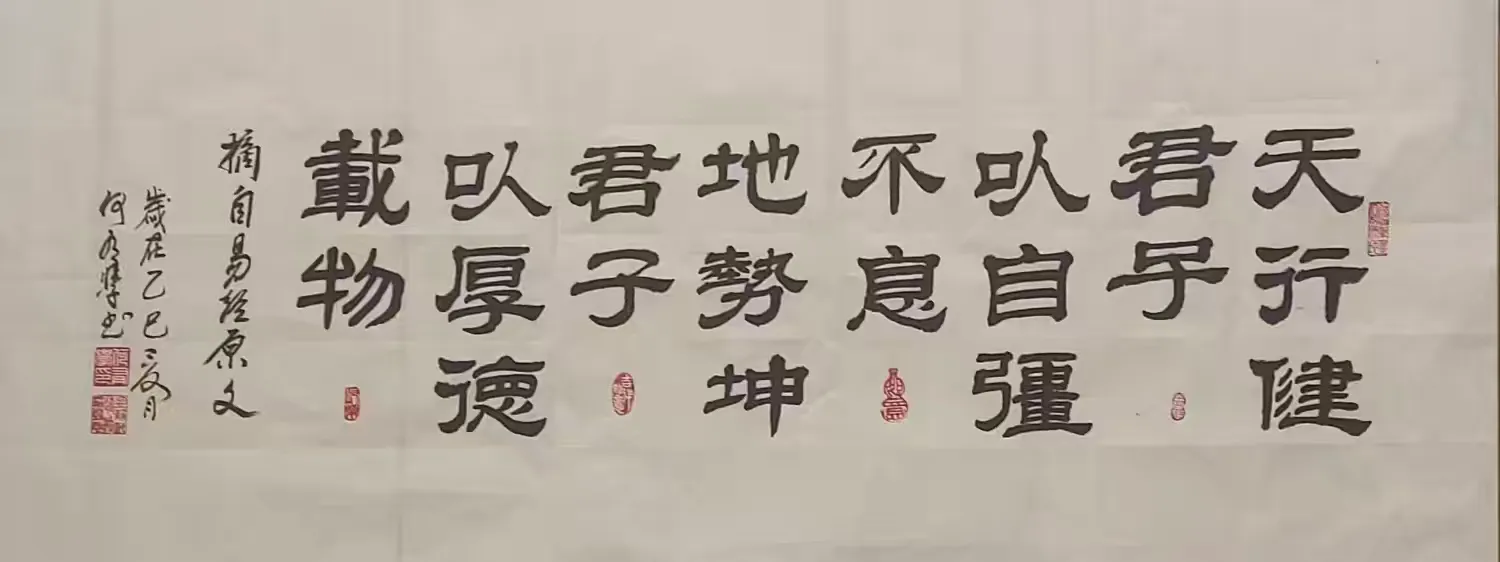 天行健
君子
以自彊
不息
地勢坤
君子
以厚德
載物
摘自易经原文
歲在乙巳三月
何
书